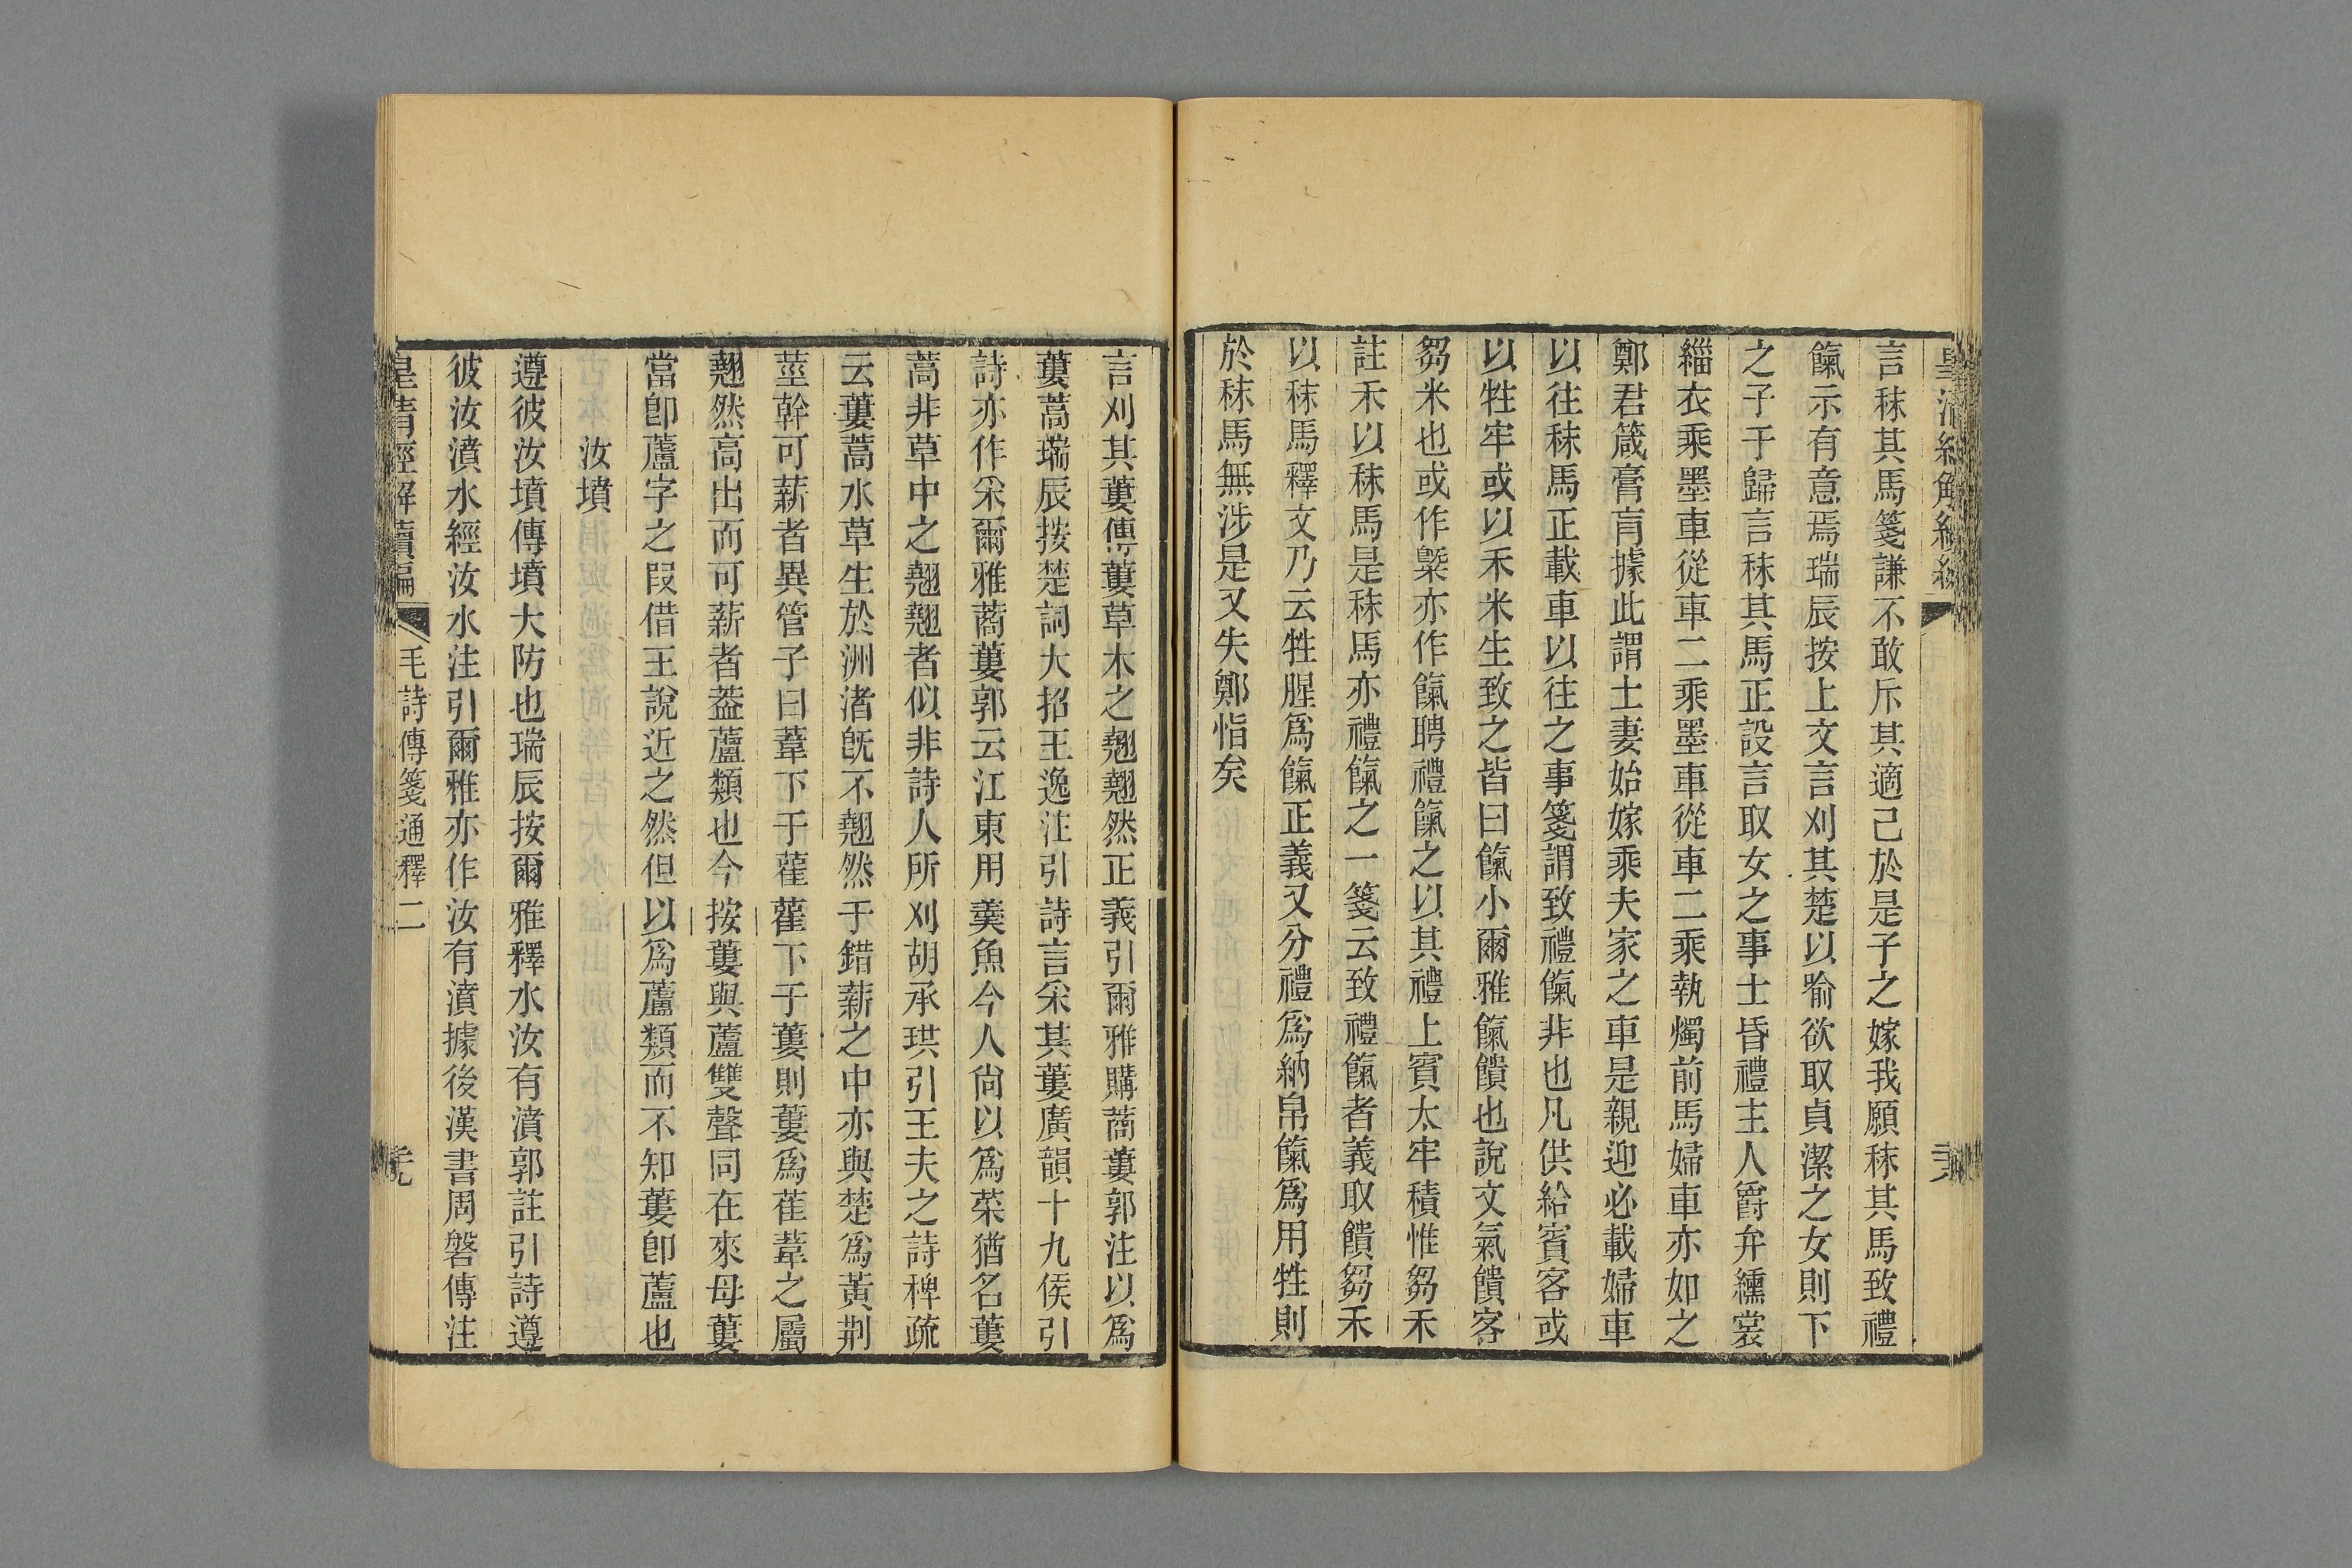 言秣其馬箋謙不敢斥其適己於是子之嫁我願秣其馬致禮
餼示有意焉瑞辰按上文言刈其楚以喻欲取貞潔之女則下
之子于歸言秣其馬正設言取女之事士昏禮主人爵弁纁裳
緇衣乘墨車從車二乘墨車從車二乘執燭前馬婦車亦如之
鄭君箴膏肓據此謂士妻始嫁乘夫家之車是親迎必載婦車
以往秣馬正載車以往之事箋謂致禮餼非也凡供給賓客或
以牲牢或以禾米生致之皆曰餼小爾雅餼饋也說文氣饋客
芻米也或作槩亦作餼聘禮餼之以其禮上賓太牢積惟芻禾
註禾以秣馬是秣馬亦禮餼之一箋云致禮餼者義取饋芻禾
以秣馬釋文乃云牲腥爲餼正義又分禮爲納帛餼爲用牲則
於秣馬無涉是又失鄭恉矣
言刈其蔞傳蔞草木之翹翹然正義引爾雅購蔏蔞郭注以爲
蔞蒿瑞辰按楚詞大招王逸注引詩言采其蔞廣韻十九侯引
詩亦作采爾雅蔏蔞郭云江東用羹魚今人尙以爲菜猶名蔞
蒿非草中之翹翹者似非詩人所刈胡承珙引王夫之詩稗疏
云蔞蒿水草生於洲渚旣不翹然于錯薪之中亦與楚爲黃荆
莖幹可薪者異管子曰葦下于雚雚下于蔞則蔞爲萑葦之屬
翹然高出而可薪者葢蘆類也今按蔞與蘆雙聲同在來母蔞
當卽蘆字之叚借王說近之然但以爲蘆類而不知蔞卽蘆也
汝墳
遵彼汝墳傳墳大防也瑞辰按爾雅釋水汝有濆郭註引詩遵
彼汝濆水經汝水注引爾雅亦作汝有濆據後漢書周磐傳注
皇清經解續編
毛詩傳箋通釋二